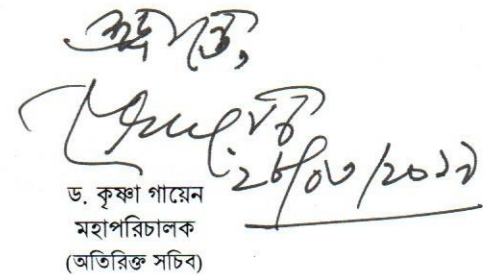 ২৮/০৩/২০১৯
ড. কৃষ্ণা গায়েন
মহাপরিচালক
(অতিরিক্ত সচিব)